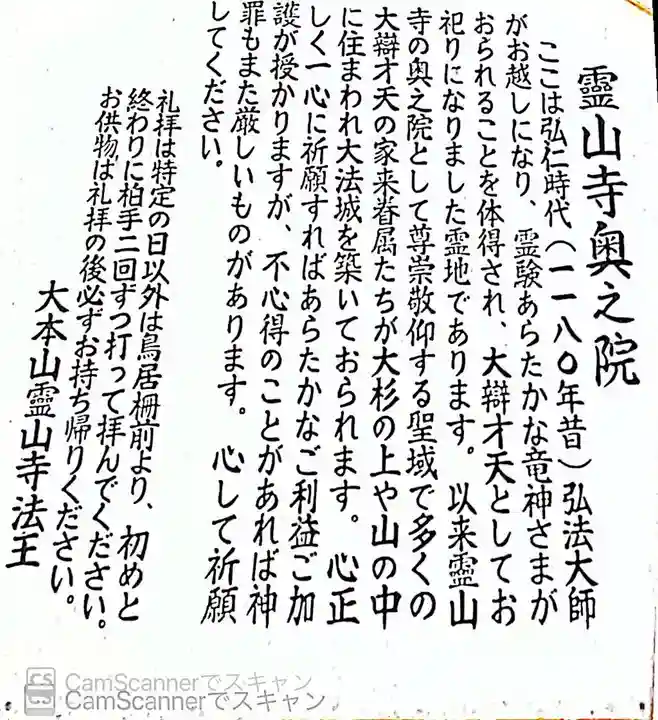 靈山寺奥之院
ここは弘仁時代(一一八〇年昔)弘法大師
がお越しになり、霊験あらたかな竜神さまが
おられることを体得され、大辯才天としてお
祀りになりました霊地であります。以来霊山
寺の奥之院として尊崇敬仰する聖域で多くの
大辯才天の家来眷属たちが大杉の上や山の中
に住まわれ大法城を築いておられます。心正
しく一心に祈願すればあらたかなご利益ご加
護が授かりますが、不心得のことがあれば神
罪もまた厳しいものがあります。心して祈願
してください。
礼拝は特定の日以外は鳥居柵前より、初めと
終わりに柏手二回ずつ打って拝んでください。
お供物は礼拝の後必ずお持ち帰りください。
大本山靈山寺法王
CS CamScannerでスキャン
CS CamScannerでスキャン